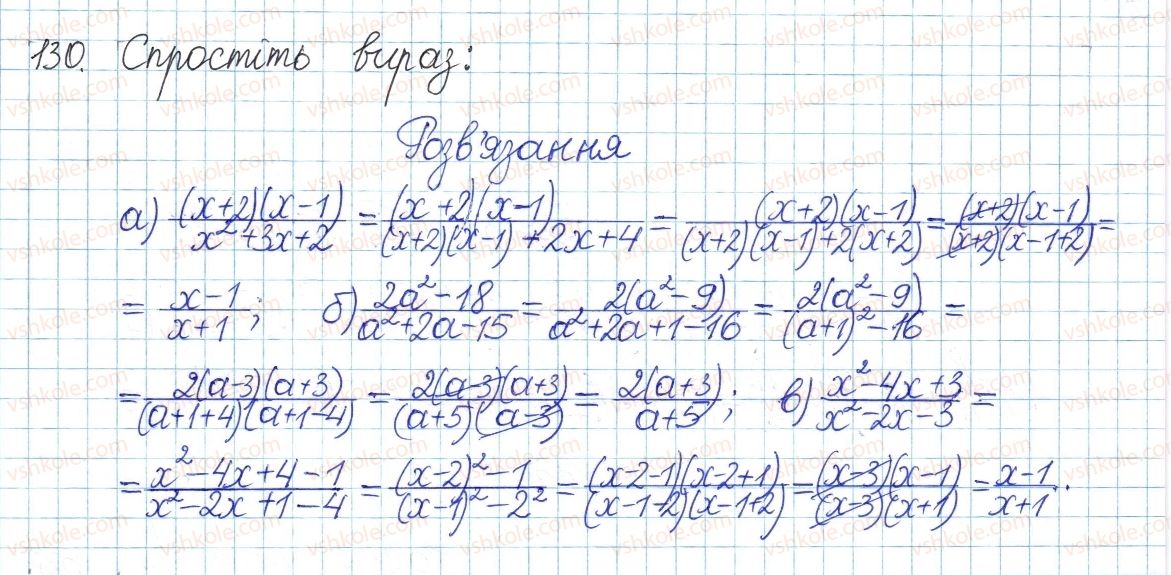 130. Спростіть вираз:
Розв'язання
а) (x+2)(x-1)/x²+3x+2 = (x+2)(x-1)/(x+2)(x-1)+2x+4 = (x+2)(x-1)/(x+2)(x-1)+2(x+2) = (x+2)(x-1)/(x+2)(x-1+2) =
= x-1/x+1; б) 2a²-18/a²+2a-15 = 2(a²-9)/a²+2a+1-16 = 2(a²-9)/(a+1)²-16 =
= 2(a-3)(a+3)/(a+1+4)(a+1-4) = 2(a-3)(a+3)/(a+5)(a-3) = 2(a+3)/a+5; в) x²-4x+3/x²-2x-3 =
= x²-4x+4-1/x²-2x+1-4 = (x-2)²-1/(x-1)²-2² = (x-2-1)(x-2+1)/(x-1-2)(x-1+2) = (x-3)(x-1)/(x-3)(x+1) = x-1/x+1.